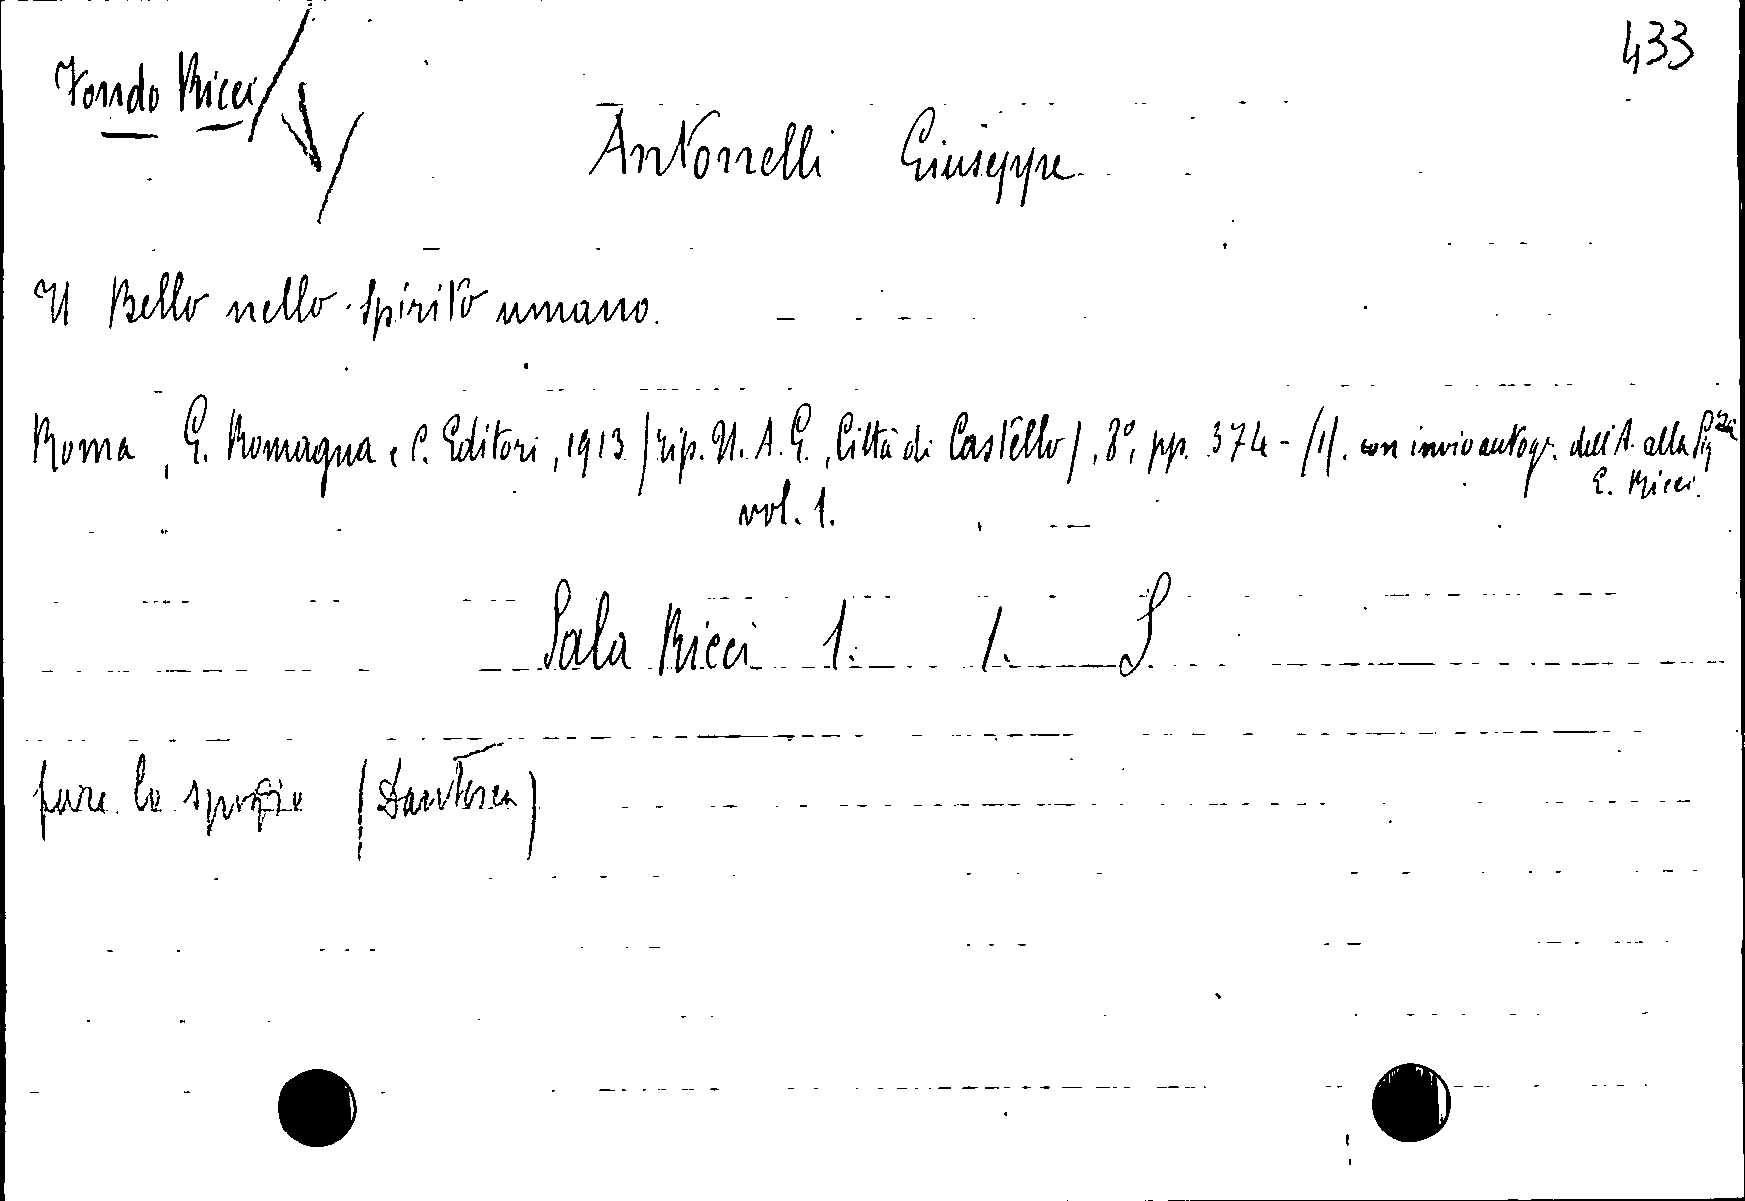 433
Fondo Ricci
Antonelli Giuseppe
Il Bello nello spirito umano.
Roma, G. Romagna e C. Editori, 1913 (tip. U. A. G., Città di Castello), 8°, pp. 374 - (1). con invio autogr. dell'A. alla Sig.ra
E. Ricci.
vol. 1.
Sala Ricci 1. 1. S
fare lo spoglio (Dantesca)